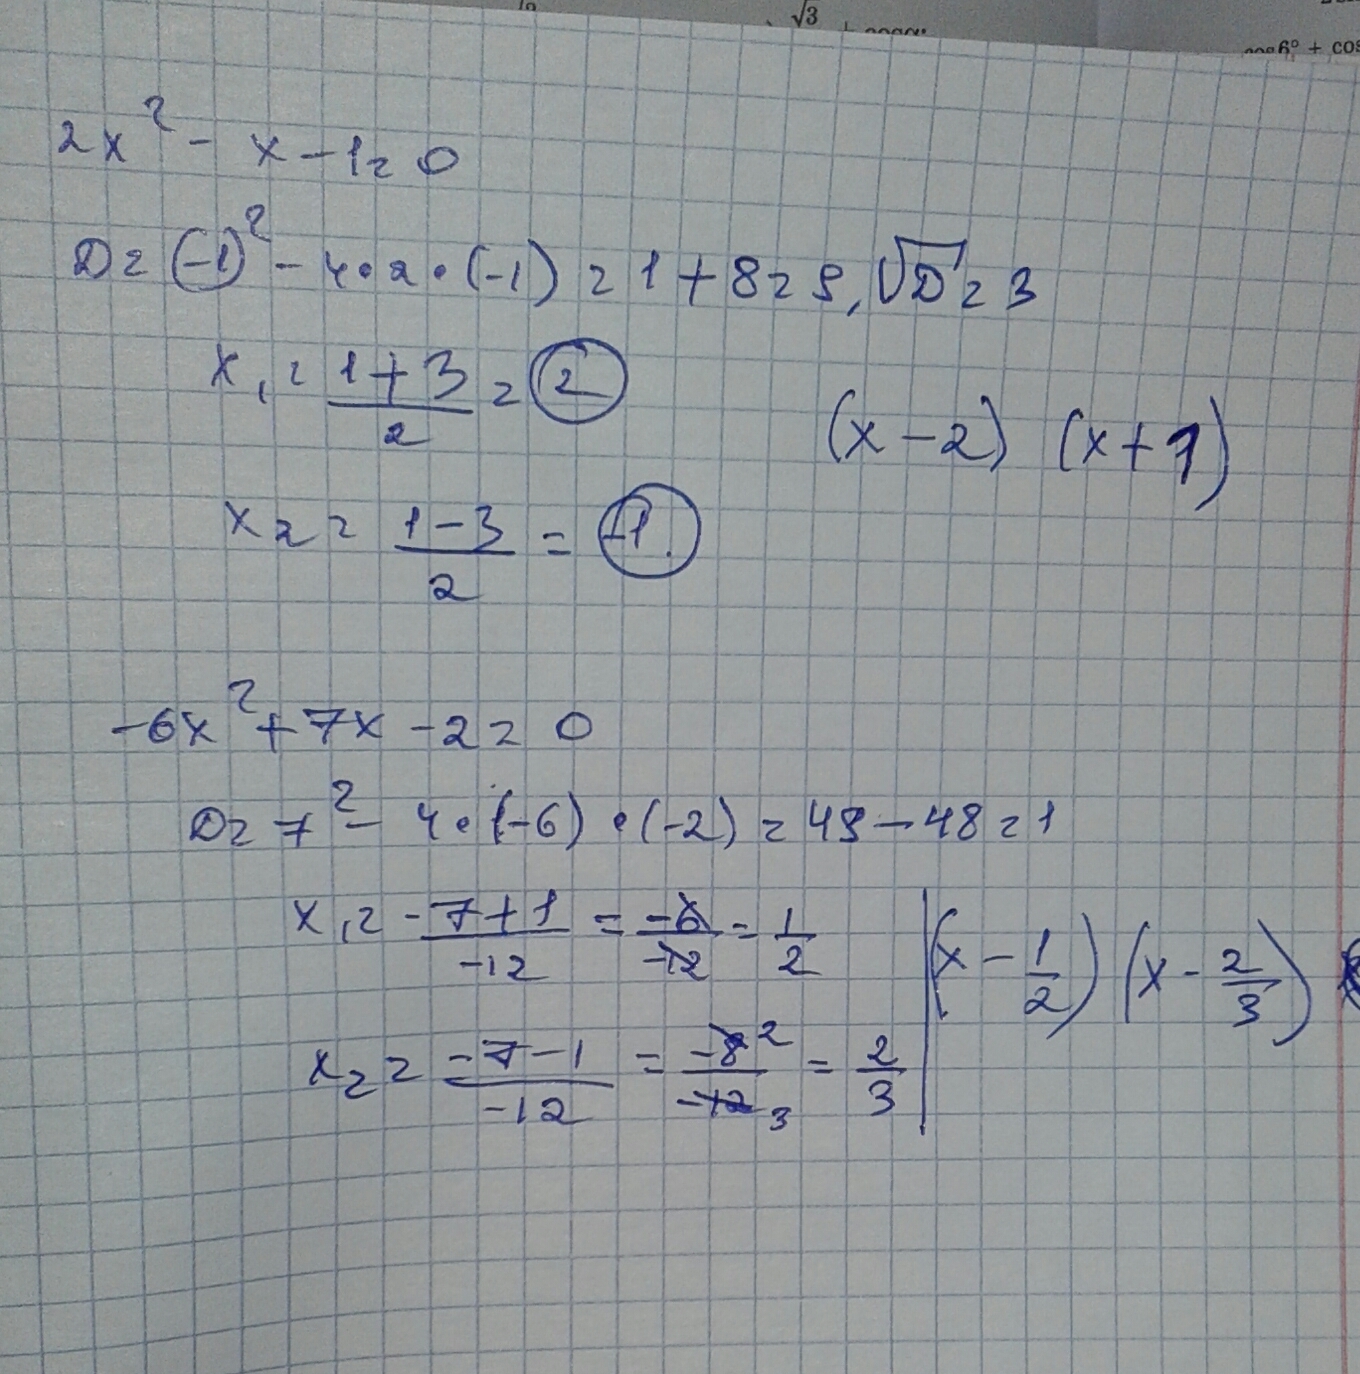 √3
cos6° + cos
2x² - x - 1 = 0
D = (-1)² - 4 • 2 • (-1) = 1 + 8 = 9, √D = 3
x₁ = (1+3)/2 = 2
(x-2) (x+1)
x₂ = (1-3)/2 = -1.
-6x² + 7x - 2 = 0
D = 7² - 4 • (-6) • (-2) = 49 - 48 = 1
x₁ = (-7+1)/-12 = -6/-12 = 1/2
(x - 1/2) (x - 2/3)
x₂ = (-7-1)/-12 = -8 2/-12 3 = 2/3